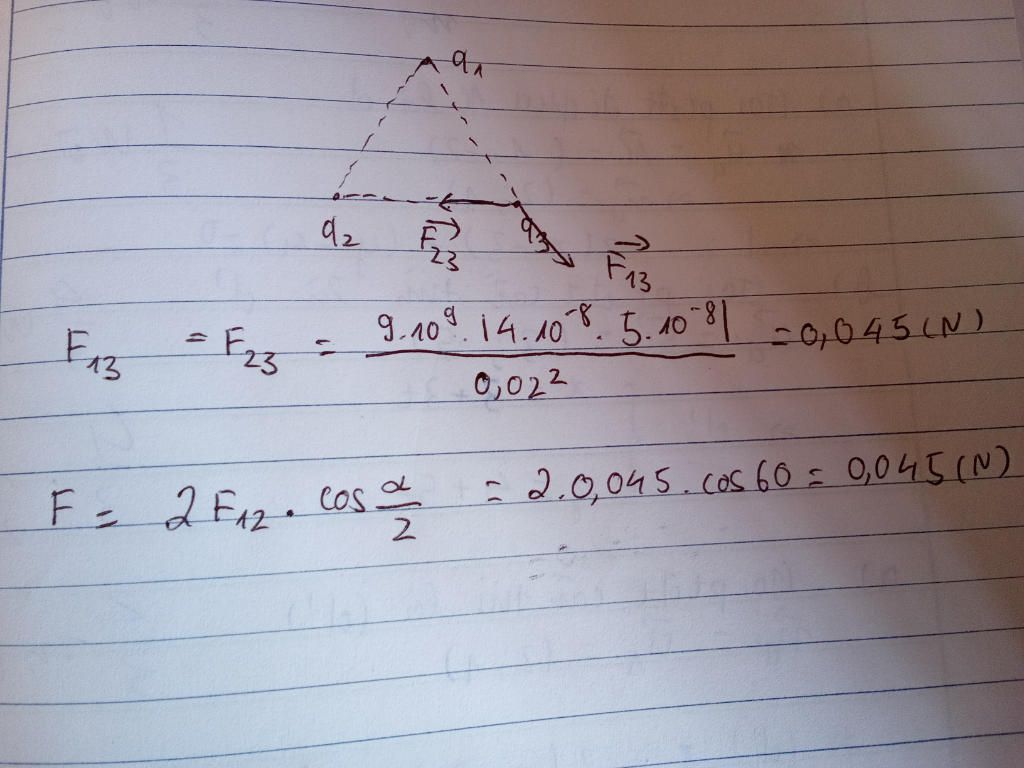 q₁
q₂ F₂₃ q₃
F₁₃
F₁₃ = F₂₃ = 9.10⁹.|4.10⁻⁸.5.10⁻⁸| / 0,02² = 0,045 (N)
F = 2F₁₂.cos α/2 = 2.0,045.cos60 = 0,045 (N)